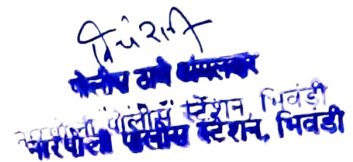 पोलीस ठाणे अंमलदार
नारपोली पोलीस स्टेशन, भिवंडी
नारपोली पोलीस स्टेशन, भिवंडी